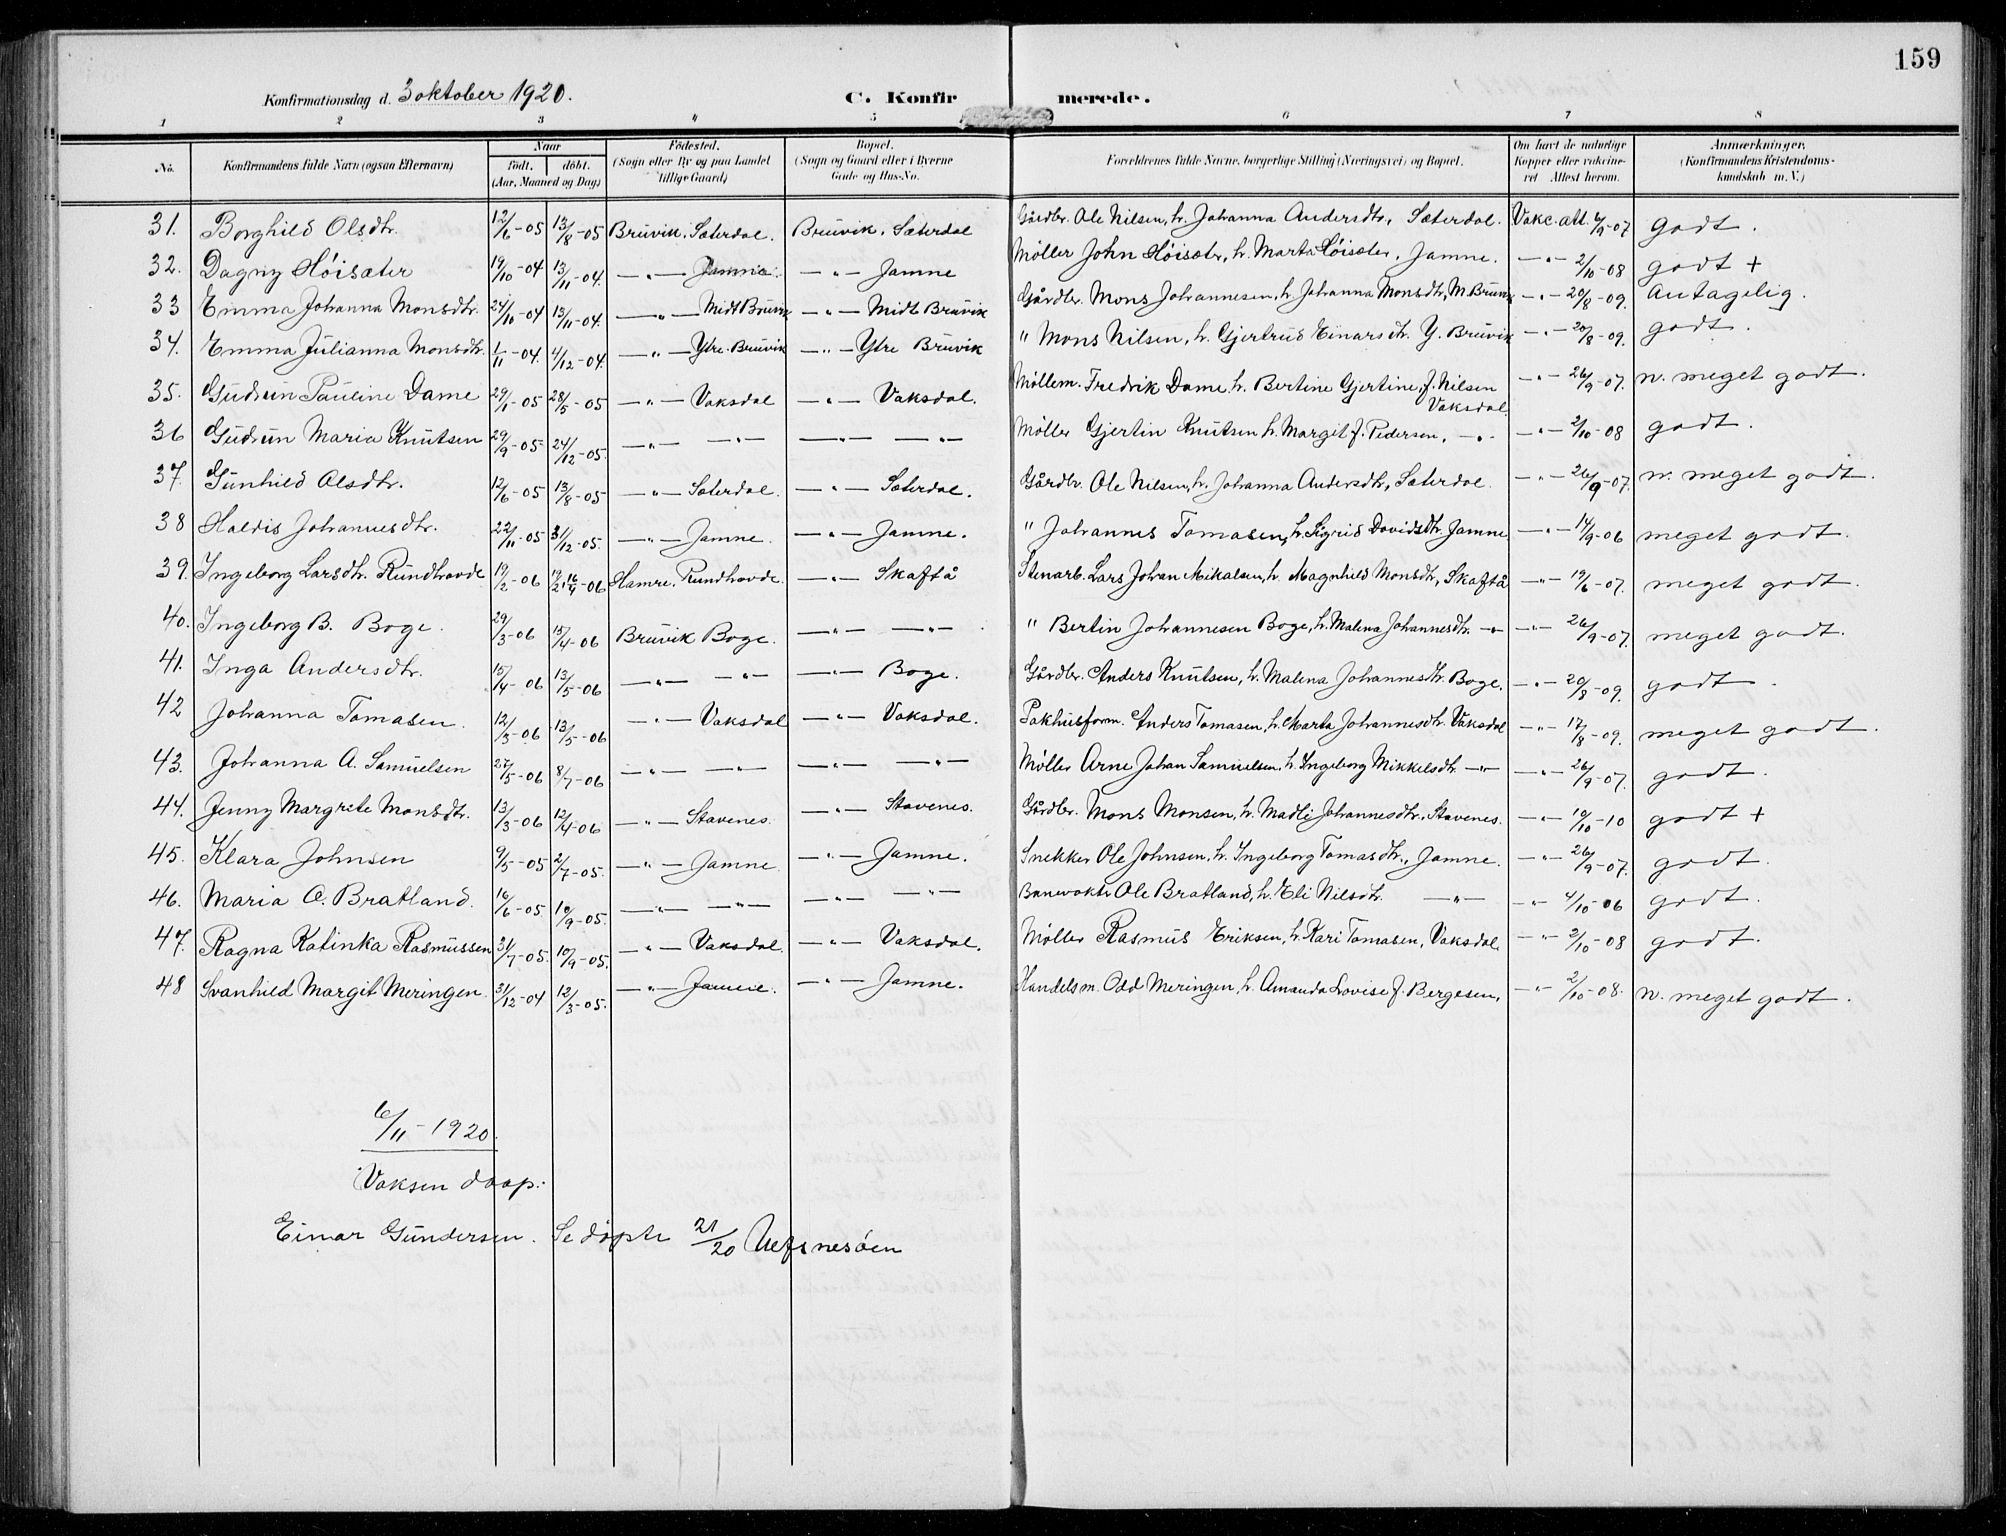 159
Konfirmationsdag d. 3 oktober 1920.
C. Konfirmerede.
1 2 3 4 5 6 7 8
No. Konfirmandens fulde Navn (ogsaa Efternavn) Naar født. døbt. (Aar, Maaned og Dag) Fødested. (Sogn eller By og paa Landet tillige Gaard) Bopæl. (Sogn og Gaard eller i Byerne Gade og Hus-No. Forældrenes fulde Navne, borgerlige Stilling (Næringsvei) og Bopæl. Om havt de naturlige Kopper eller vaccineret Attest herom. Anmærkninger. (Konfirmandens Kristendomskundskab m. V.)
31. Borghild Olsdtr. 12/6-05 13/8-05 Bruvik, Sæterdal. Bruvik, Sæterdal Gårdbr. Ole Nilsen, h. Johanna Andersdtr, Sæterdal. Vakc. att. 6/9-07 godt.
32. Dagny Høisæter 19/10-04 13/11-04. —"— Jamne. —"— Jamne Møller John Høisæter, h. Marta Høisæter, Jamne. —"— 2/10-08 godt +
33 Emma Johanna Monsdtr. 24/10-04 13/11-04. —"— Midt Bruvik —"— Midt Bruvik Gårdbr. Mons Johannesen, h. Johanna Monsdtr, M. Bruvik —"— 20/8-09. Antagelig.
34. Emma Julianna Monsdtr. 1/11-04. 4/12-04. —"— Ytre. Bruvik —"— Ytre Bruvik " Mons Nilsen, h. Gjertrud Einarsdtr. Y. Bruvik —"— 20/8-09. godt.
35. Gudrun Pauline Dame 29/1-05 28/5-05 —"— Vaksdal —"— Vaksdal. Møllem. Fredrik Dame. h. Bertine Gjertine, f. Nilsen Vaksdal —"— 26/9-07. n. meget godt.
36 Gudrun Maria Knutsen 29/9-05 24/12-05. —"— —"— —"— —"— Møller Gjertin Knutsen h. Margit f. Pedersen, —"— —"— 2/10-08 godt.
37. Gunhild Olsdtr. 12/6-05 13/8-05 —"— Sæterdal. —"— Sæterdal. Gårdbr. Ole Nilsen, h. Johanna Andersdtr, Sæterdal. —"— 26/9-07. n. meget godt.
38 Haldis Johannesdtr. 22/11-05 31/12-05. —"— Jamne. —"— Jamne. " Johannes Tomasen, h. Sigrid Davidsdtr. Jamne —"— 14/9-06 meget godt.
39. Ingeborg Larsdtr. Rundhovde 19/2-06 19/2, 16/4-06 Hamre, Rundhovde. —"— Skaftå Stenarb. Lars Johan Mikalsen, h. Magnhild Monsdtr, Skaftå —"— 19/6-07. meget godt.
40. Ingeborg B. Boge. 29/3-06 15/4-06 Bruvik Boge. —"— —"— " Bertin Johannesen Boge, h. Malena Johannesdtr. —"— —"— 26/9-07. meget godt.
41. Inga Andersdtr. 15/4-06 13/5-06 —"— —"— —"— Boge. Gårdbr. Anders Knutsen, h. Malena Johannesdtr. Boge. —"— 20/8-09. godt.
42 Johanna Tomasen. 12/3-06 13/5-06 —"— Vaksdal —"— Vaksdal. Pakhusform. Anders Tomasen, h. Marta Johannesdtr. Vaksdal —"— 17/8-09. meget godt.
43. Johanna A. Samuelsen 27/5-06 8/7-06 —"— —"— —"— —"— Møller Arne Johan Samuelsen, h. Ingeborg Mikkelsdtr. —"— —"— 26/9-07. godt.
44. Jenny Margrete Monsdtr. 13/3-06 12/4-06 —"— Stavenes. —"— Stavenes. Gårdbr. Mons Monsen, h. Madli Johannesdtr., Stavenes. —"— 10/10-10 godt +
45. Klara Johnsen 9/5-05 2/7-05. —"— Jamne. —"— Jamne. Snekker Ole Johnsen, h. Ingeborg Tomasdtr., Jamne. —"— 26/9-07. godt.
46. Maria O. Bratland. 16/6-05. 10/9-05. —"— —"— —"— —"— Banevokter Ole Bratland, h. Eli Nilsdtr. —"— —"— 4/10-06 godt.
47. Ragna Katinka Rasmussen 31/7-05. 10/9-05. —"— Vaksdal. —"— Vaksdal. Møller Rasmus Eriksen, h. Kari Tomasen, Vaksdal. —"— 2/10-08 godt.
48 Svanhild Margit Meringen. 31/12-04 12/3-05. —"— Jamne. —"— Jamne. Handelsm. Odd Meringen, h. Amanda Lovise f. Bergesen, —"— 2/10-08. n. meget godt.
6/11-1920.
Voksen daap:
Einar Gundersen. Se døpte 21/20